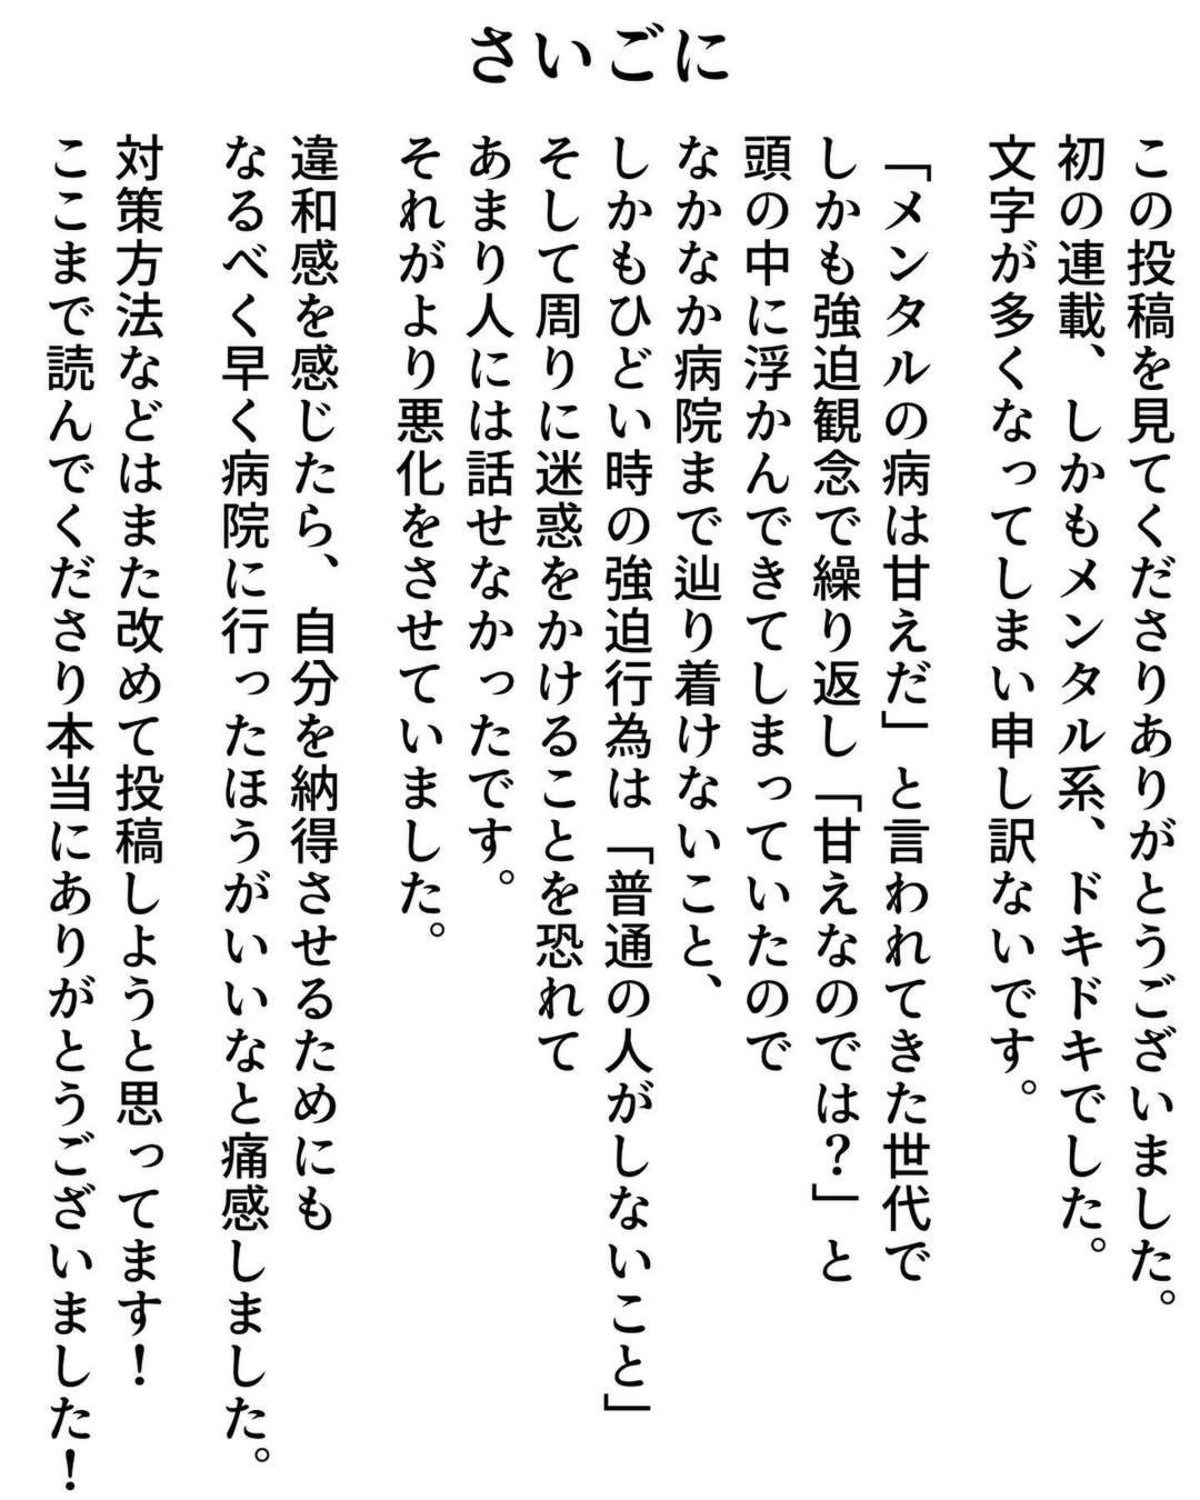 さいごに
この投稿を見てくださりありがとうございました。
初の連載、しかもメンタル系、ドキドキでした。
文字が多くなってしまい申し訳ないです。
「メンタルの病は甘えだ」と言われてきた世代で
しかも強迫観念で繰り返し「甘えなのでは？」と
頭の中に浮かんできてしまっていたので
なかなか病院まで辿り着けないこと、
しかもひどい時の強迫行為は「普通の人がしないこと」
そして周りに迷惑をかけることを恐れて
あまり人には話せなかったです。
それがより悪化をさせていました。
違和感を感じたら、自分を納得させるためにも
なるべく早く病院に行ったほうがいいなと痛感しました。
対策方法などはまた改めて投稿しようと思ってます！
ここまで読んでくださり本当にありがとうございました！